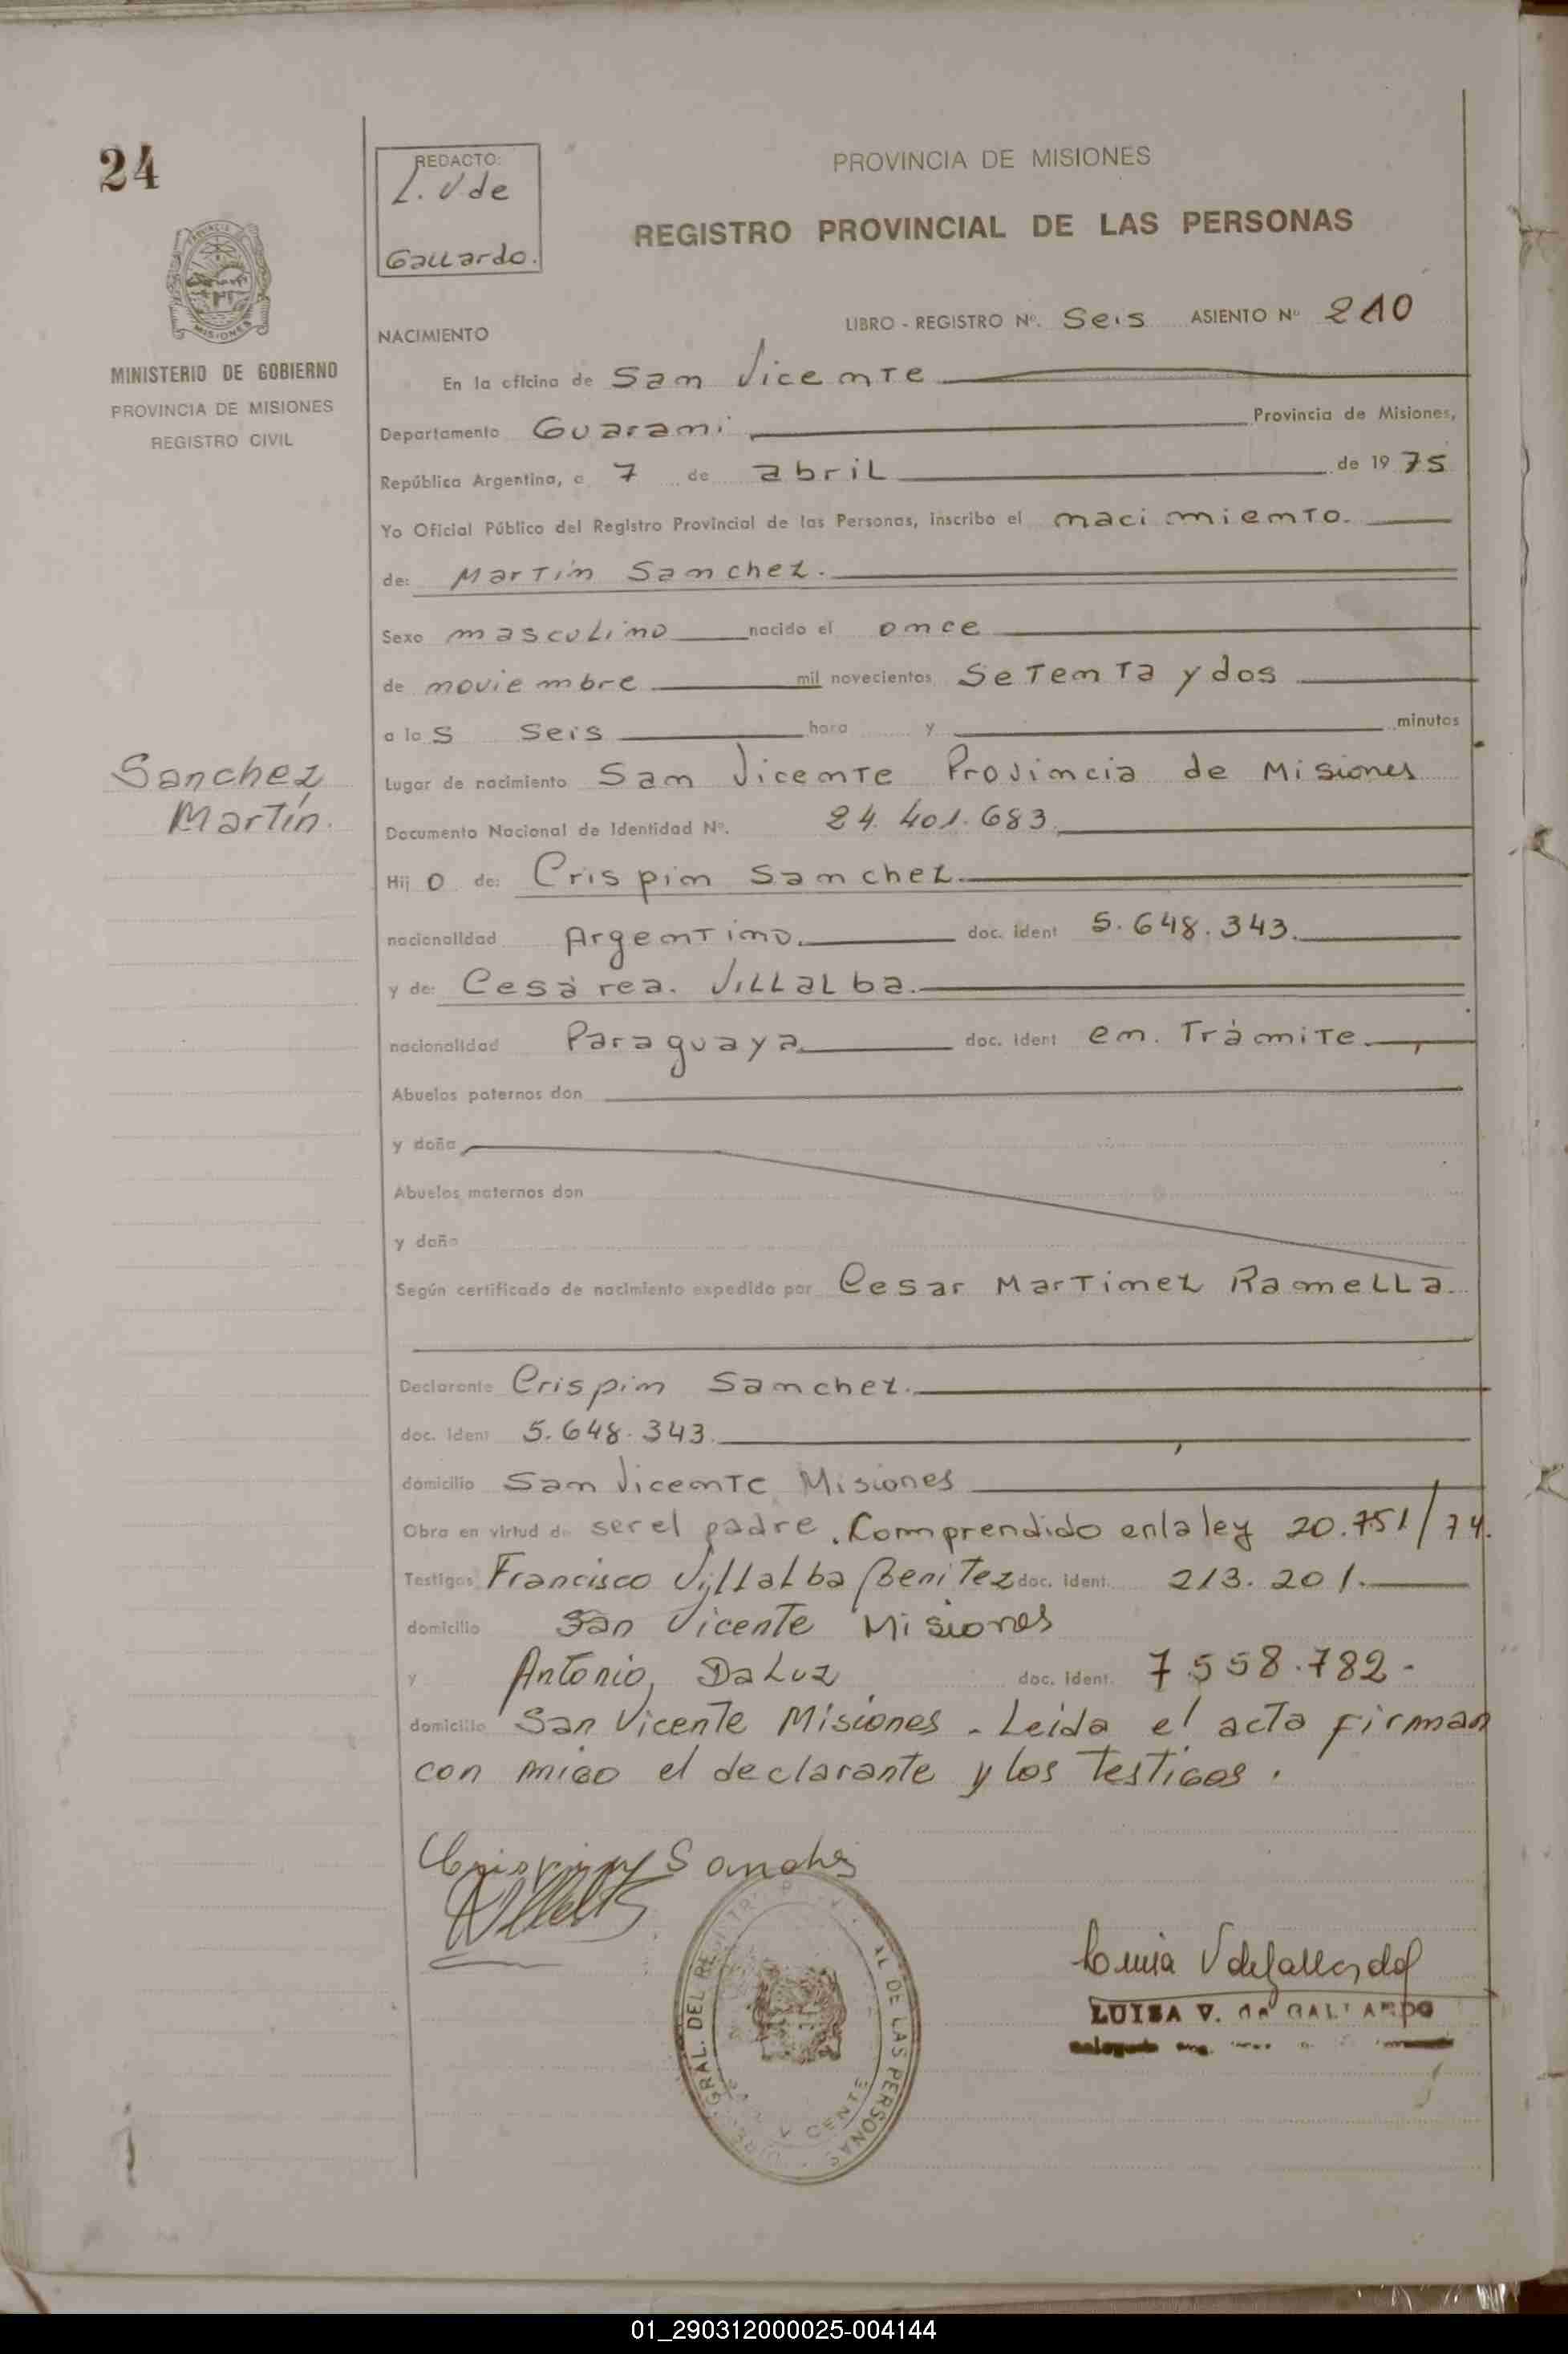 24
REDACTO:
L. V de
Gallardo.
PROVINCIA DE MISIONES
REGISTRO PROVINCIAL DE LAS PERSONAS
MISIONES
MINISTERIO DE GOBIERNO
PROVINCIA DE MISIONES
REGISTRO CIVIL
NACIMIENTO
LIBRO - REGISTRO Nº. Seis ASIENTO Nº 210
En la oficina de San Vicente
Departamento Guarani Provincia de Misiones,
República Argentina, a 7 de abril de 1975
Yo Oficial Público del Registro Provincial de las Personas, inscribo el nacimiento.
de: Martín Sanchez.
Sexo masculino nacido el once
de noviembre mil novecientos setenta y dos
a las seis hora y minutos
Sanchez
Martín.
Lugar de nacimiento San Vicente Provincia de Misiones
Documento Nacional de Identidad Nº. 24.401.683.
Hijo de: Crispin Sanchez.
nacionalidad Argentino. doc. ident 5.648.343.
y de: Cesárea. Villalba.
nacionalidad Paraguaya doc. ident en. Trámite.
Abuelos paternos don
y doña
Abuelos maternos don
y doña
Según certificado de nacimiento expedido por Cesar Martinez Ramella.
Declarante Crispin Sanchez.
doc. ident 5.648.343.
domicilio San Vicente Misiones
Obra en virtud de ser el padre. Comprendido en la ley 20.751/74.
Testigos Francisco Villalba Benitez doc. ident. 213.201.
domicilio San Vicente Misiones
y Antonio, Da Luz doc. ident. 7.558.782-
domicilio San Vicente Misiones - Leída el acta firman
con migo el declarante y los testigos.
Crispin Sanchez
Luisa V de Gallardo
LUISA V. de GALLARDO
GRAL. DEL RE DE LAS PERSONAS
VICENTE
01_290312000025-004144